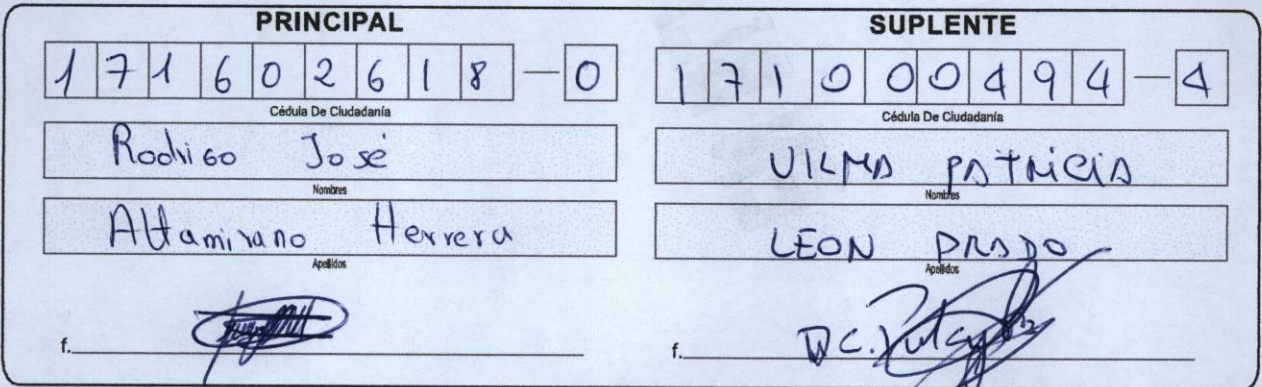 PRINCIPAL
171602618-0
Cédula De Ciudadanía
Rodrigo José
Nombres
Altamirano Herrera
Apellidos
f.
SUPLENTE
171000494-4
Cédula De Ciudadanía
VILMA PATRICIA
Nombres
LEON PRADO
Apellidos
f.